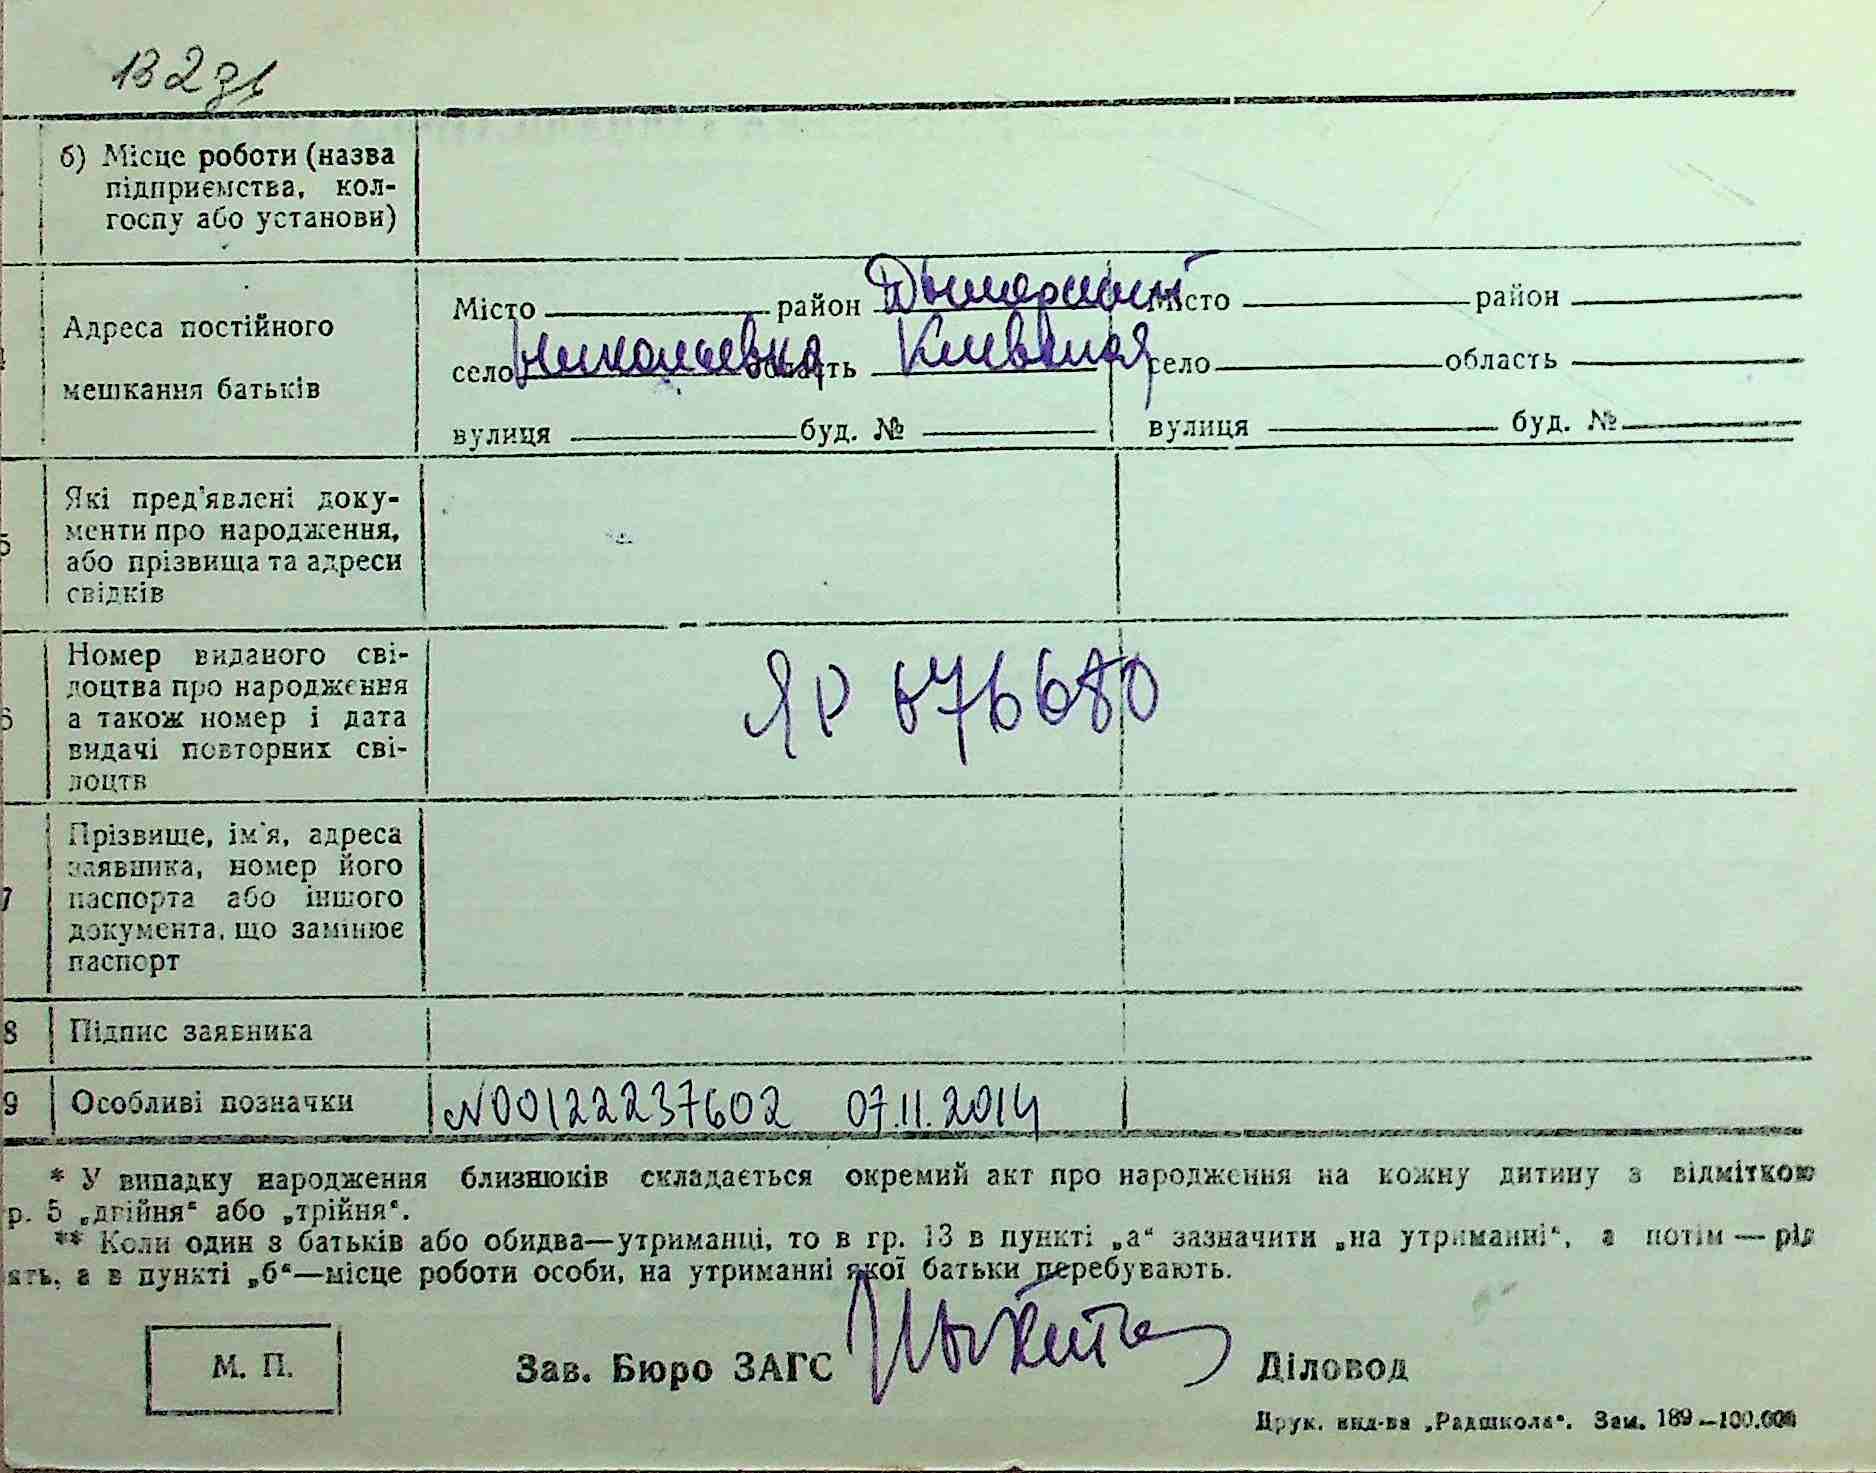 132зв
б) Місце роботи (назва
підприємства, кол-
госпу або установи)
Адреса постійного
мешкання батьків
Місто район Дымерский Місто район
село Николаевка область Киевская село область
вулиця буд. № вулиця буд. №
5 Які пред'явлені доку-
менти про народження,
або прізвища та адреси
свідків
6 Номер виданого сві-
доцтва про народження
а також номер і дата
видачі повторних сві-
доцтв
ЯР 676680
7 Прізвище, ім'я, адреса
заявника, номер його
паспорта або іншого
документа, що замінює
паспорт
8 Підпис заявника
9 Особливі позначки N00122237602 07.11.2014
* У випадку народження близнюків складається окремий акт про народження на кожну дитину з відміткою
р. 5 „двійня“ або „трійня“.
** Коли один з батьків або обидва—утриманці, то в гр. 13 в пункті „а“ зазначити „на утриманні“, а потім — рід
ять, а в пункті „б“—місце роботи особи, на утриманні якої батьки перебувають.
М. П. Зав. Бюро ЗАГС Діловод
Друк. вид-ва „Радшкола“. Зам. 189—100.000